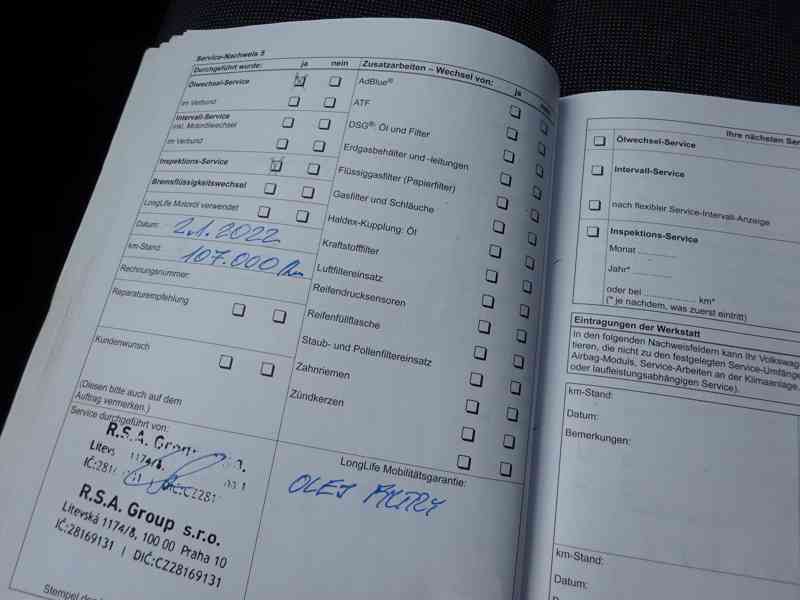 Service-Nachweis 5
Durchgeführt wurde: ja nein
Ölwechsel-Service
im Verbund
Intervall-Service
inkl. Motorölwechsel
im Verbund
Inspektions-Service
Bremsflüssigkeitswechsel
LongLife Motoröl verwendet
Datum: 2.1.2022
km-Stand: 107.000 km
Rechnungsnummer:
Reparaturempfehlung
Kundenwunsch
(Diesen bitte auch auf dem
Auftrag vermerken.)
Service durchgeführt von:
R.S.A. Group
1174/8,
DIČ:CZ281
R.S.A. Group s.r.o.
Litevská 1174/8, 100 00 Praha 10
IČ:28169131 | DIČ:CZ28169131
Stempel des
Zusatzarbeiten – Wechsel von: ja
AdBlue®
ATF
DSG®: Öl und Filter
Erdgasbehälter und -leitungen
Flüssiggasfilter (Papierfilter)
Gasfilter und Schläuche
Haldex-Kupplung: Öl
Kraftstofffilter
Luftfiltereinsatz
Reifendrucksensoren
Reifenfüllflasche
Staub- und Pollenfiltereinsatz
Zahnriemen
Zündkerzen
LongLife Mobilitätsgarantie:
OLEJ FILTRY
Ihre nächsten Ser
Ölwechsel-Service
Intervall-Service
nach flexibler Service-Intervall-Anzeige
Inspektions-Service
Monat ............
Jahr* ............
oder bei ................ km*
(* je nachdem, was zuerst eintritt)
Eintragungen der Werkstatt
In den folgenden Nachweisfeldern kann Ihr Volkswag
tieren, die nicht zu den festgelegten Service-Umfäng
Airbag-Moduls, Service-Arbeiten an der Klimaanlage,
oder laufleistungsabhängigen Service).
km-Stand:
Datum:
Bemerkungen:
km-Stand:
Datum: